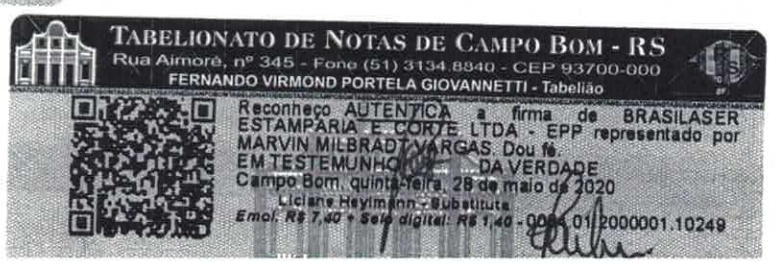 TABELIONATO DE NOTAS DE CAMPO BOM - RS
Rua Aimoré, nº 345 - Fone (51) 3134.8840 - CEP 93700-000
FERNANDO VIRMOND PORTELA GIOVANNETTI - Tabelião
Reconheço AUTENTICA a firma de BRASILASER
ESTAMPARIA E CORTE LTDA - EPP representado por
MARVIN MILBRADT VARGAS. Dou fé.
EM TESTEMUNHO DA VERDADE
Campo Bom, quinta-feira, 28 de maio de 2020
Liciane Heylmann - Substituta
Emol: R$ 7,40 + Selo digital: R$ 1,40 - 01 2000001.10249